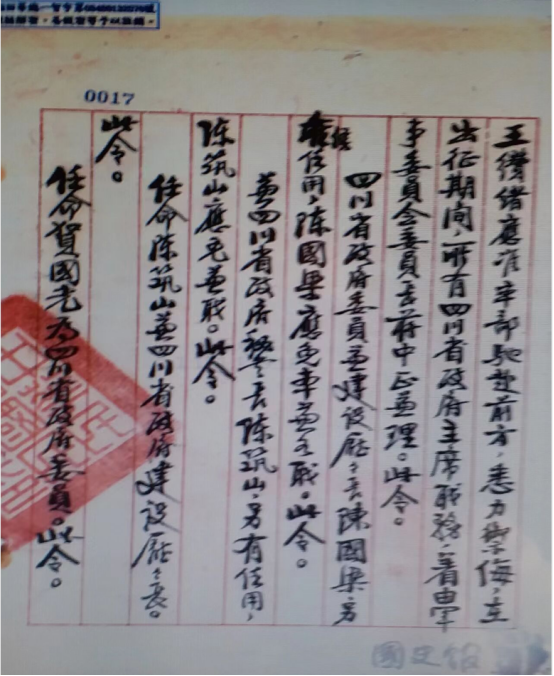 0017
王纘緒應准率部馳赴前方，悉力禦侮，在
出征期间，所有四川省政府主席職務，着由軍
事委員会委員長蔣中正兼理。此令。
四川省政府委員兼建設廳々長陳國梁，另
有任用，陳國梁應免本兼各職。此令。
兼四川省政府秘書長陳筑山，另有任用，
陳筑山應免兼職。此令。
任命陳筑山兼四川省政府建設廳々長。
此令。
任命賀國光為四川省政府委員。此令。
國史館